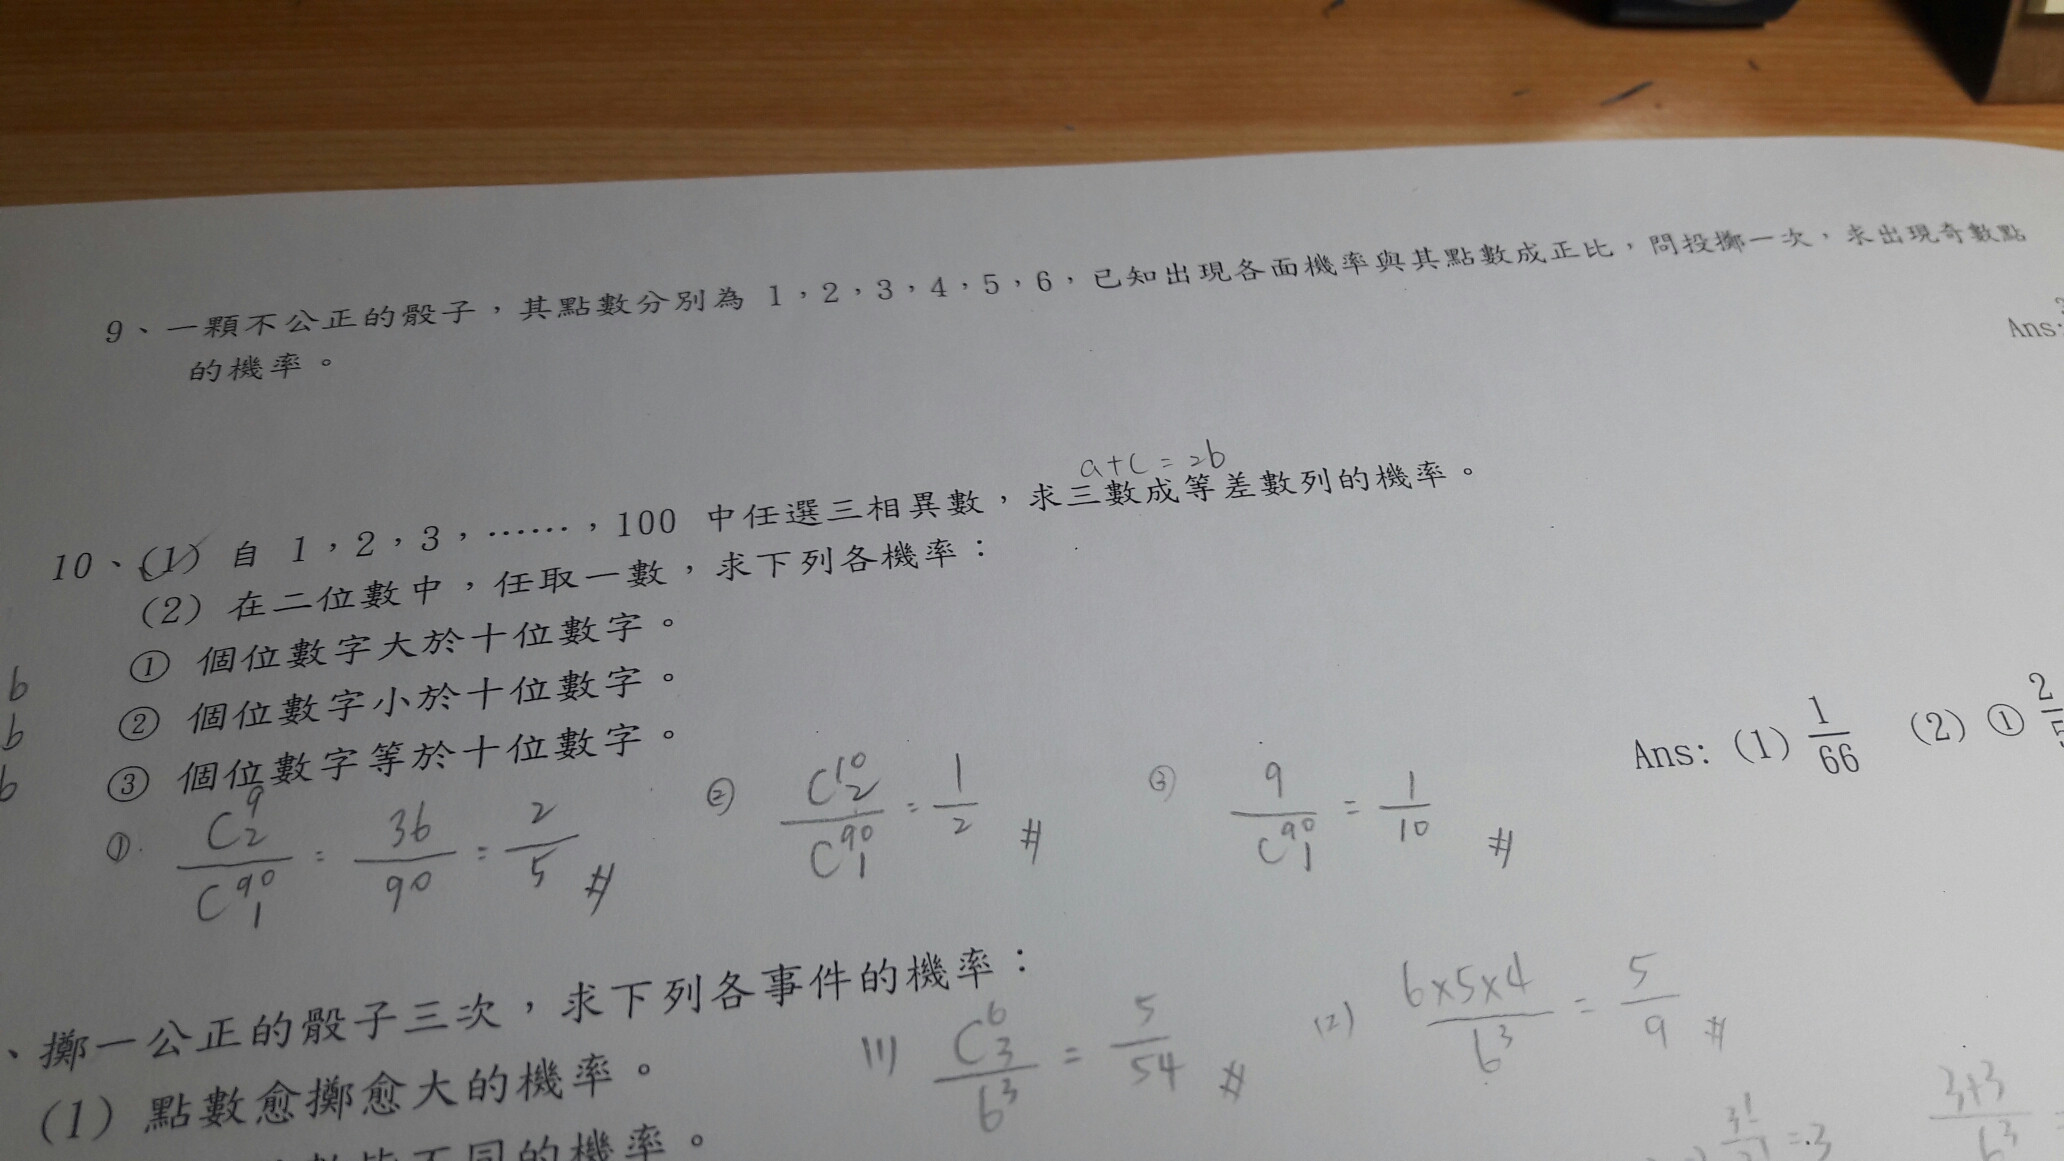 9、一顆不公正的骰子，其點數分別為 1，2，3，4，5，6，已知出現各面機率與其點數成正比，問投擲一次，求出現奇數點
的機率。
Ans:
a+c=2b
10、(1) 自 1，2，3，……，100 中任選三相異數，求三數成等差數列的機率。
(2) 在二位數中，任取一數，求下列各機率：
① 個位數字大於十位數字。
b
② 個位數字小於十位數字。
b
③ 個位數字等於十位數字。
b
Ans: (1) 1/66 (2) ① 2/5
① C⁹₂/C⁹⁰₁ = 36/90 = 2/5 #
② C¹⁰₂/C⁹⁰₁ = 1/2 #
③ 9/C⁹⁰₁ = 1/10 #
、擲一公正的骰子三次，求下列各事件的機率：
(1) 點數愈擲愈大的機率。
(1) C⁶₃/6³ = 5/54 #
(2) 6×5×4/6³ = 5/9 #
不同的機率。
=3
3+3/6³